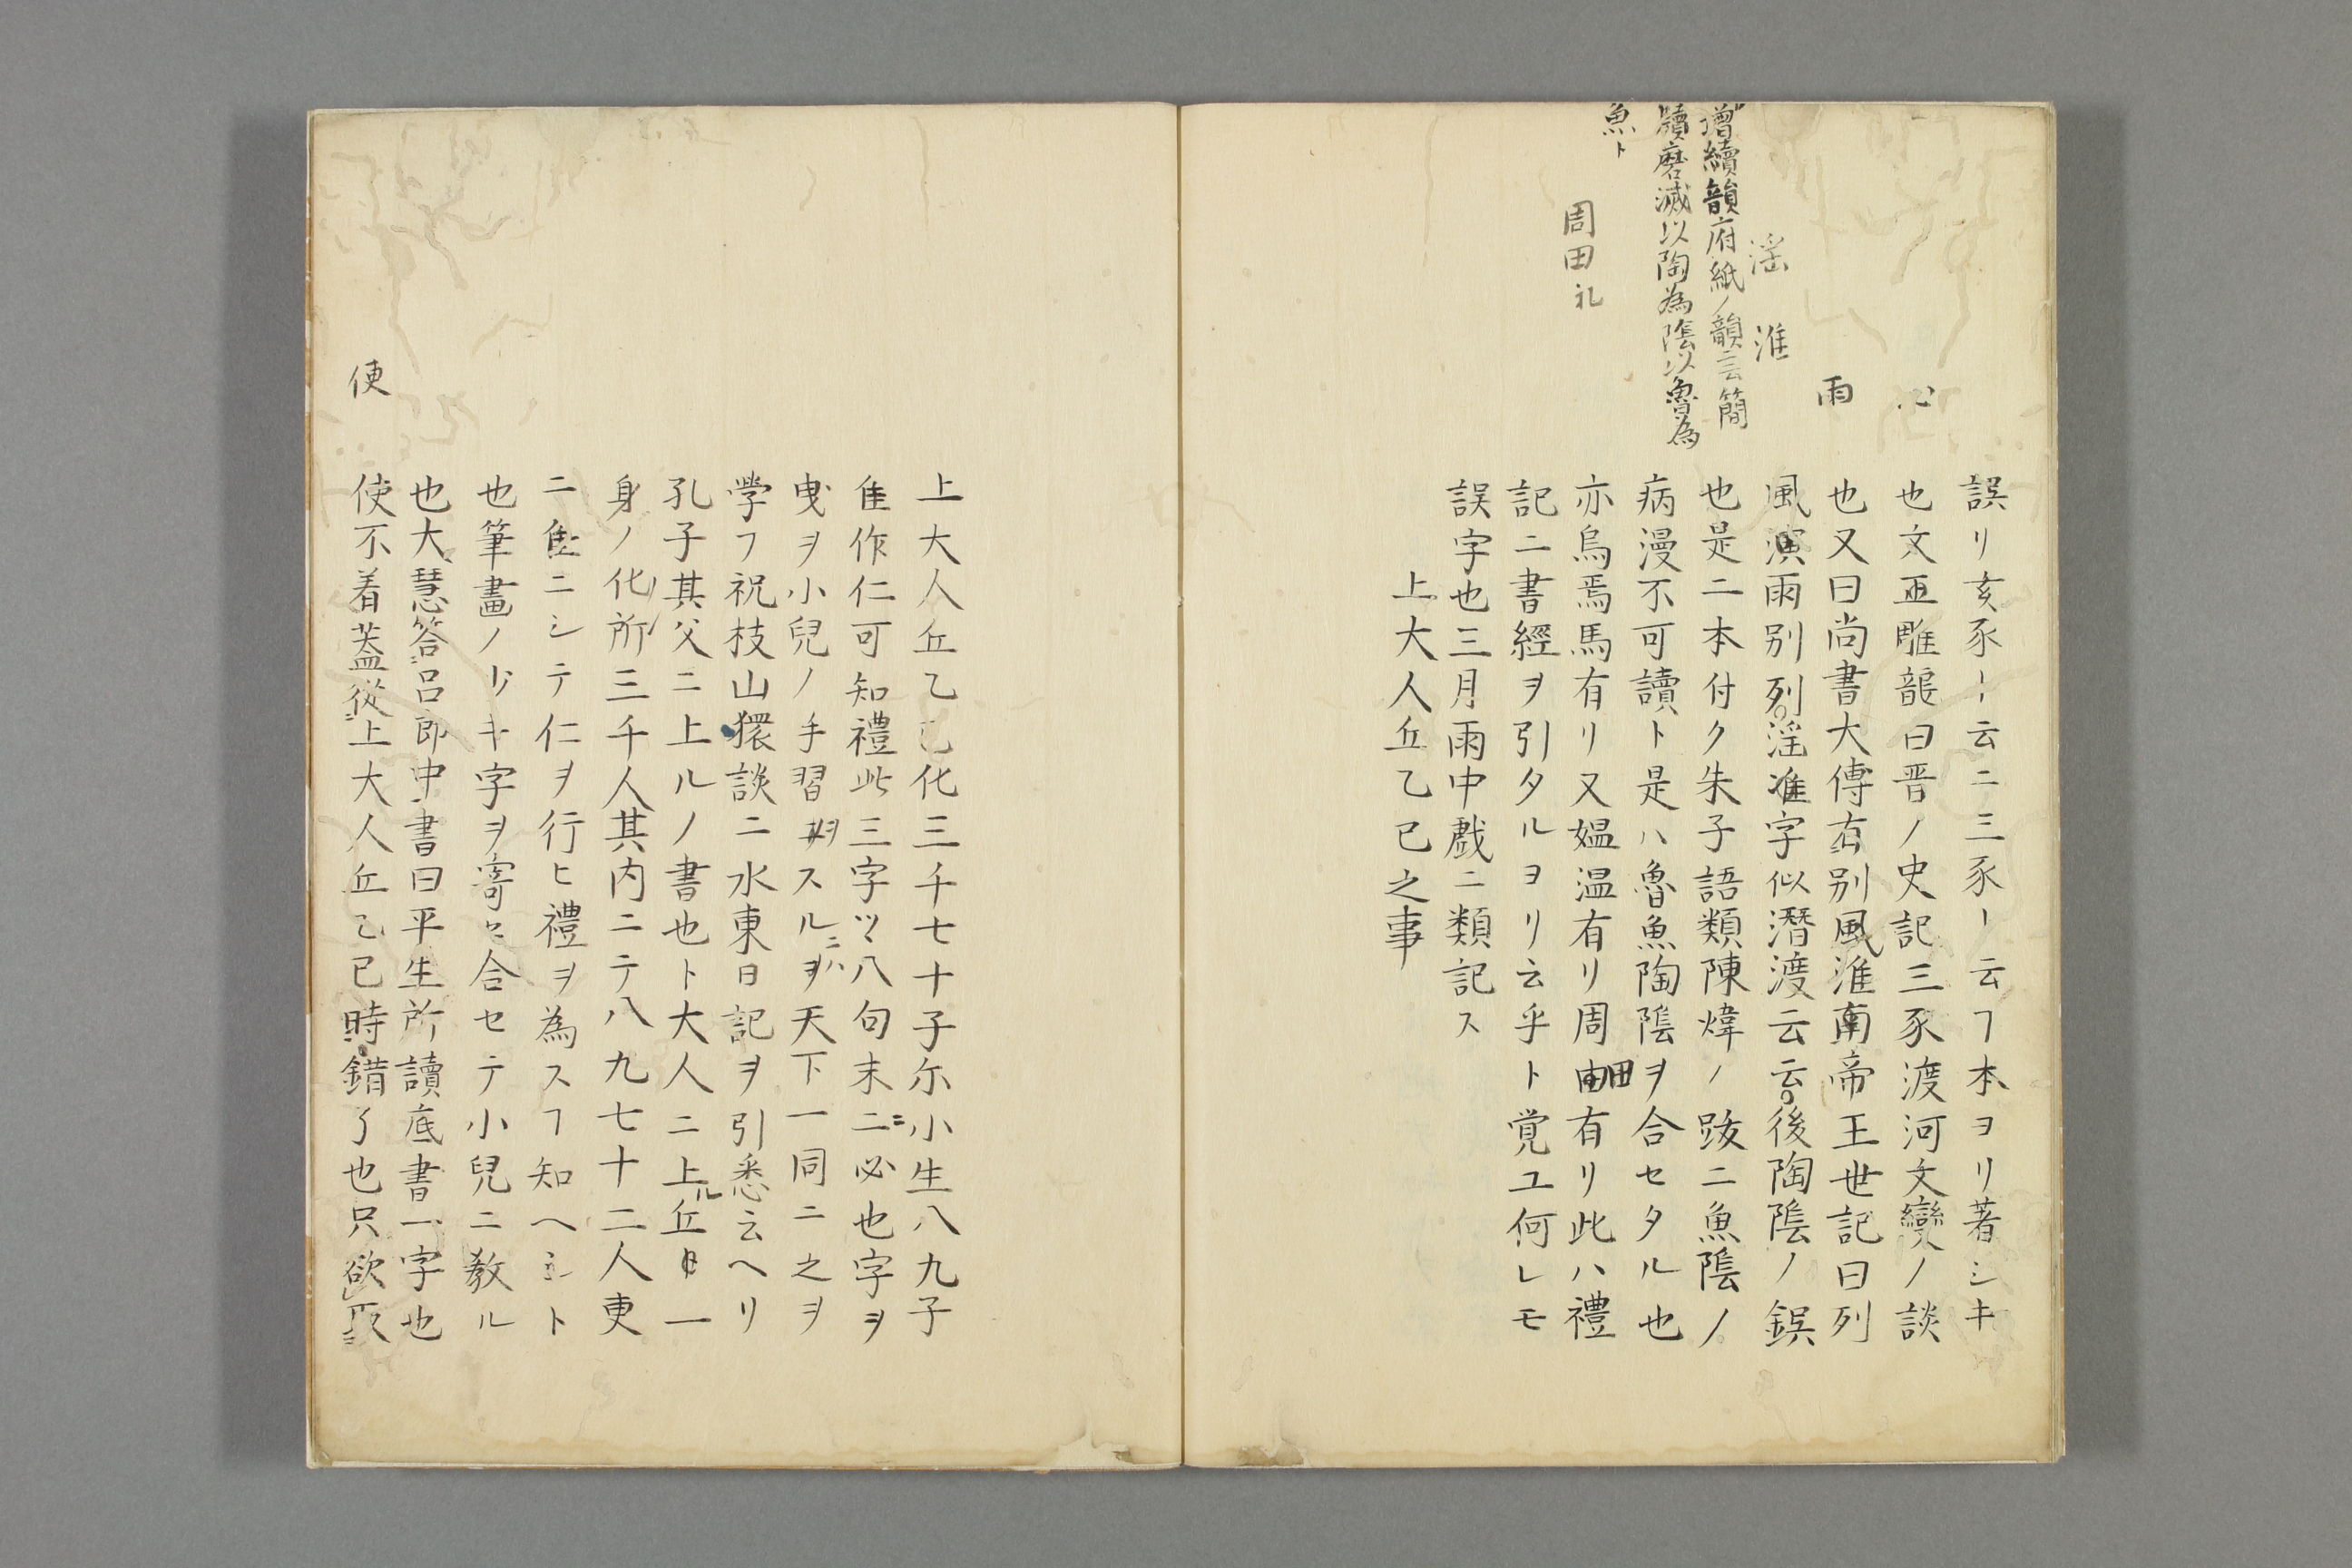 増續韻府紙ノ韻云簡
牘磨滅以陶為陰以魯為
魚ト
周田礼
淫 淮
雨
誤リ亥豕ー云ニ三豕ー云フ本ヨリ著シキ
也文 雕龍曰晋ノ史記三豕渡河文變ノ談
也又曰尚書大傳有別風淮南帝王世記曰列
風演雨別列淫淮字似潛渡云云後陶陰ノ鋘
也是二本付ク朱子語類陳煒ノ跋ニ魚陰ノ
病漫不可讀ト是ハ魯魚陶陰ヲ合セタル也
亦烏焉馬有リ又媼温有リ周田有リ此ハ禮
記ニ書經ヲ引タルヨリ云乎ト覚ユ何レモ
誤字也三月雨中戯ニ類記ス
上大人丘乙已之事
上大人丘乙已化三千七十子尓小生八九子
隹作仁可知禮此三字ツヽ八句末ニ必也字ヲ
曳ヲ小兒ノ手習ヲスルニハ天下一同ニ之ヲ
學フ祝枝山猥談ニ水東日記ヲ引悉云ヘリ
孔子其父ニ上ルノ書也ト大人ニ上ル丘 一
身ノ化所三千人其内ニテ八九七十二人更
ニ隹ニシテ仁ヲ行ヒ禮ヲ為スフ知ヘシト
也筆畫ノ少キ字ヲ寄セ合セテ小兒ニ教ル
也大慧答呂郎中書曰平生所讀底書一字也
使
使不着葢從上大人丘乙已時錯了也只欲取